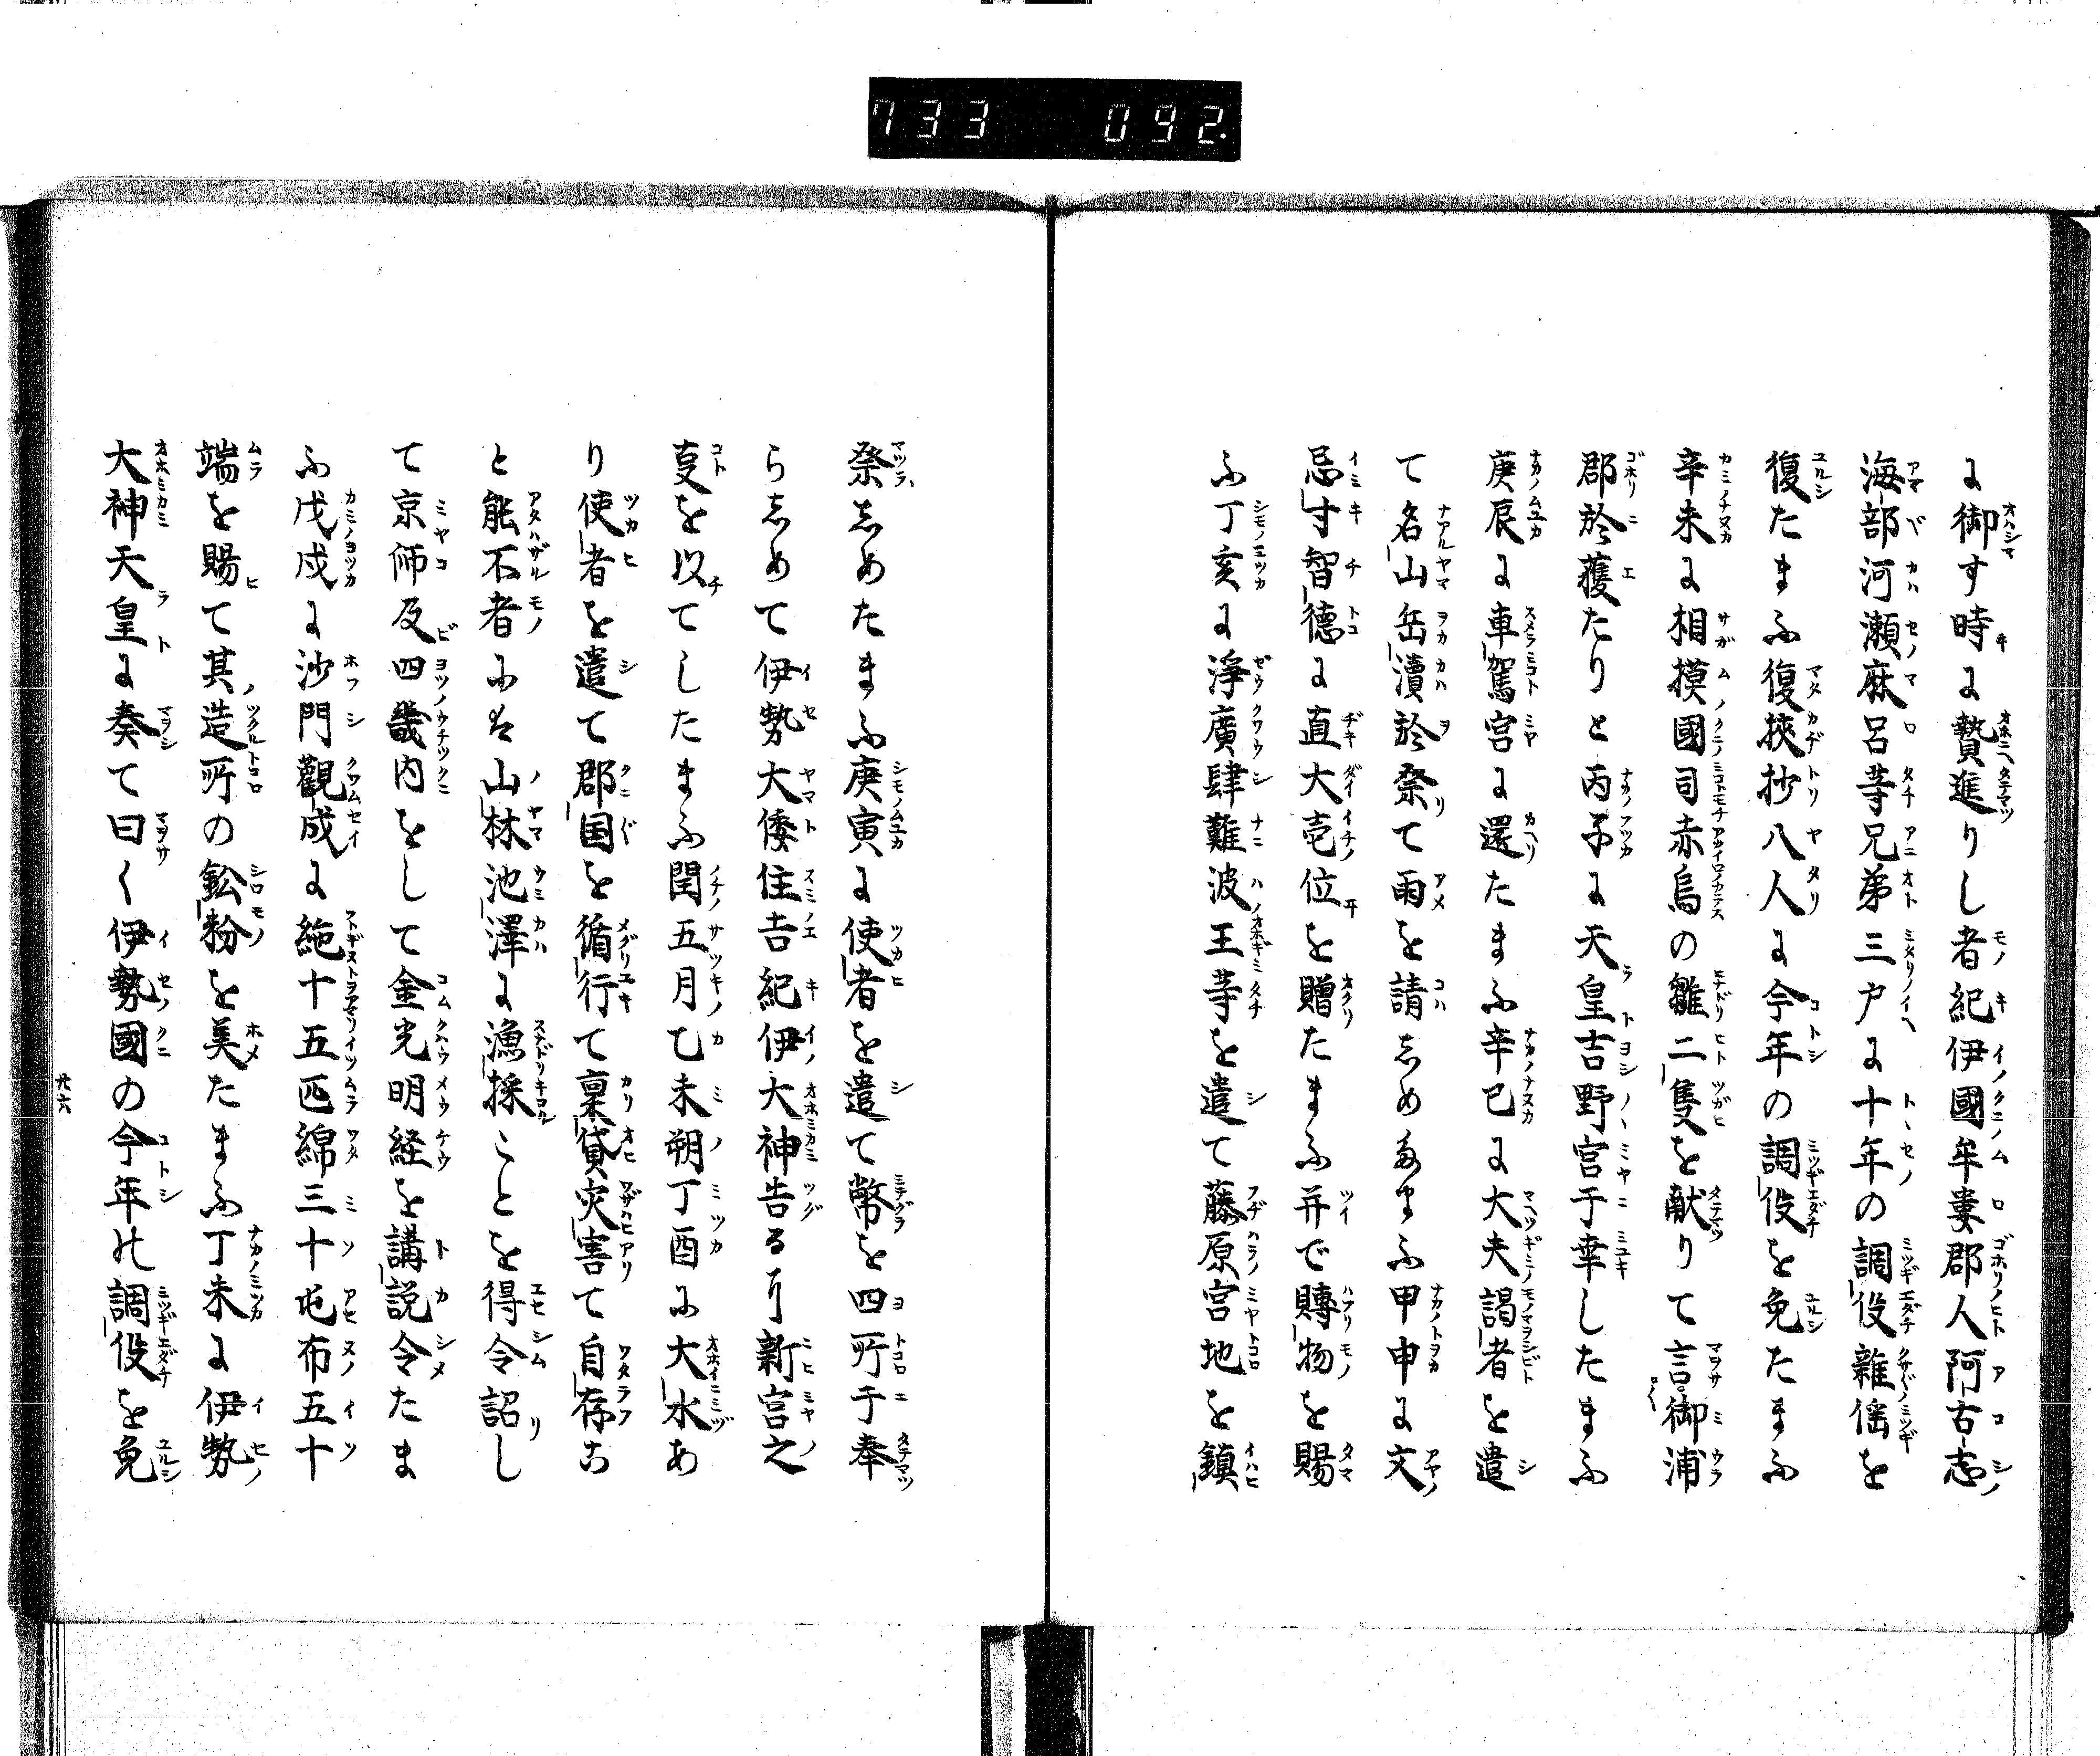 733 092.
に御す時に贄進りし者紀伊國牟婁郡人阿古志
海部河瀬麻呂等兄弟三戸に十年の調役雜傜を
復たまふ復挾抄八人に今年の調役を免たまふ
辛未に相摸國司赤烏の雛二隻を献りて言御浦
郡於獲たりと丙子に天皇吉野宮于幸したまふ
庚辰に車駕宮に還たまふ辛巳に大夫謁者を遣
て名山岳瀆於祭て雨を請しめたまふ甲申に文
忌寸智德に直大壱位を贈たまふ并で賻物を賜
ふ丁亥に淨廣肆難波王等を遣て藤原宮地を鎮
祭しめたまふ庚寅に使者を遣て幣を四所于奉
らしめて伊勢大倭住吉紀伊大神告るに新宮之
叓を以てしたまふ閏五月乙未朔丁酉に大水あ
り使者を遣て郡国を循行て稟貸灾害て自存こ
と能不者には山林池澤に漁採ことを得令詔し
て京师及四畿内をして金光明経を講説令たま
ふ戊戌に沙門觀成に絁十五匹綿三十屯布五十
端を賜て其造所の鈆粉を美たまふ丁未に伊勢
大神天皇に奏て曰く伊勢國の今年の調役を免
廿六